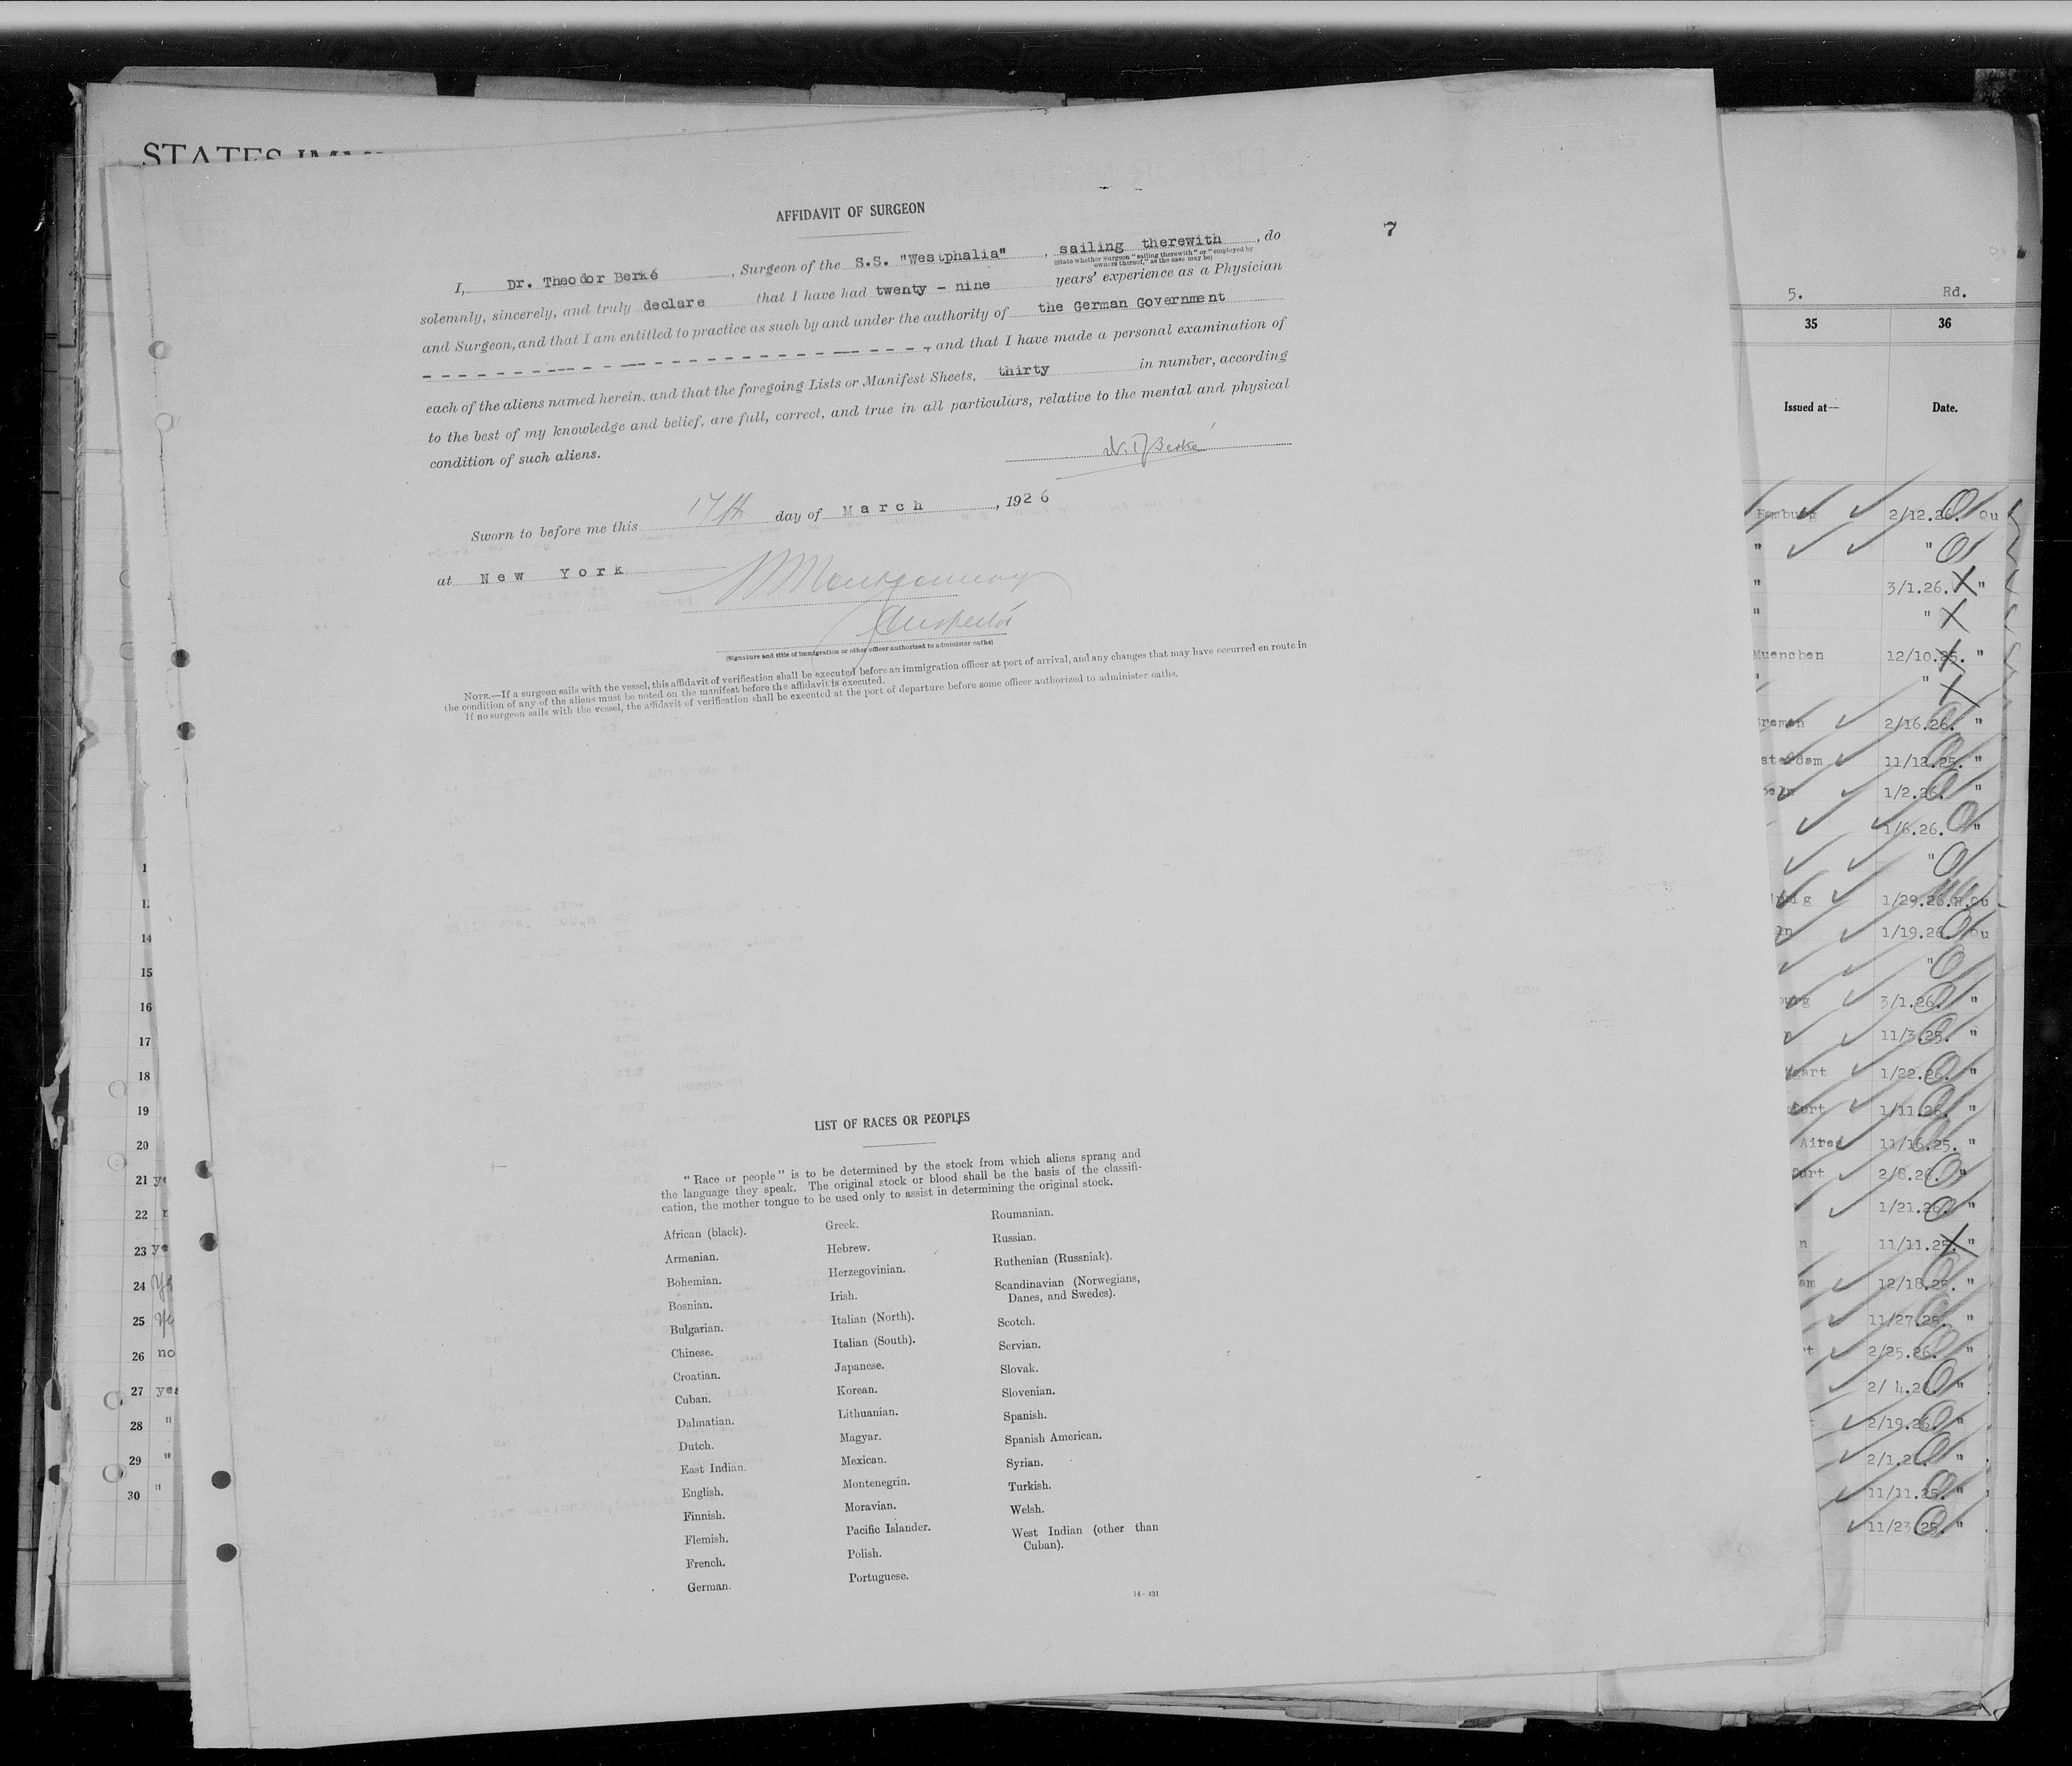 AFFIDAVIT OF SURGEON
7
I, Dr. Theodor Berké, Surgeon of the S.S. "Westphalia", sailing therewith, do
(State whether Surgeon "sailing therewith" or "employed by
owners thereof," as the case may be)
solemnly, sincerely, and truly declare that I have had twenty - nine years' experience as a Physician
and Surgeon, and that I am entitled to practice as such by and under the authority of the German Government
, and that I have made a personal examination of
each of the aliens named herein. and that the foregoing Lists or Manifest Sheets, thirty in number, according
to the best of my knowledge and belief, are full, correct, and true in all particulars, relative to the mental and physical
condition of such aliens.
Berké
Sworn to before me this 17th day of March, 1926
at New York
Montgomery
Inspector
(Signature and title of immigration or other officer authorized to administer oaths)
NOTE.—If a surgeon sails with the vessel, this affidavit of verification shall be executed before an immigration officer at port of arrival, and any changes that may have occurred en route in
the condition of any of the aliens must be noted on the manifest before the affidavit is executed.
If no surgeon sails with the vessel, the affidavit of verification shall be executed at the port of departure before some officer authorized to administer oaths.
LIST OF RACES OR PEOPLES
"Race or people" is to be determined by the stock from which aliens sprang and
the language they speak. The original stock or blood shall be the basis of the classifi-
cation, the mother tongue to be used only to assist in determining the original stock.
African (black).
Armenian.
Bohemian.
Bosnian.
Bulgarian.
Chinese.
Croatian.
Cuban.
Dalmatian.
Dutch.
East Indian.
English.
Finnish.
Flemish.
French.
German.
Greek.
Hebrew.
Herzegovinian.
Irish.
Italian (North).
Italian (South).
Japanese.
Korean.
Lithuanian.
Magyar.
Mexican.
Montenegrin.
Moravian.
Pacific Islander.
Polish.
Portuguese.
Roumanian.
Russian.
Ruthenian (Russniak).
Scandinavian (Norwegians,
Danes, and Swedes).
Scotch.
Servian.
Slovak.
Slovenian.
Spanish.
Spanish American.
Syrian.
Turkish.
Welsh.
West Indian (other than
Cuban).
14-431
STATES
14
15
16
17
18
19
20
21
22
23
24
25
26 no
27
28 "
29 "
30 "
5. Rd.
35 36
Issued at— Date.
Hamburg 2/12.26. Qu
" "
" 3/1.26. "
" "
Muenchen 12/10.25. "
" "
Bremen 2/16.26. "
11/12.25. "
1/2.26. "
1/6.26. "
"
1/29.26.N.Qu
1/19.26. Qu
"
3/1.26. "
11/3.25. "
1/22.26. "
1/11.26. "
Aires 11/16.25. "
2/8.26. "
1/21.26. "
11/11.25. "
12/18.25. "
11/27.25. "
2/25.26. "
2/ 4.26. "
2/19.26. "
2/1.26. "
11/11.25. "
11/23.25. "